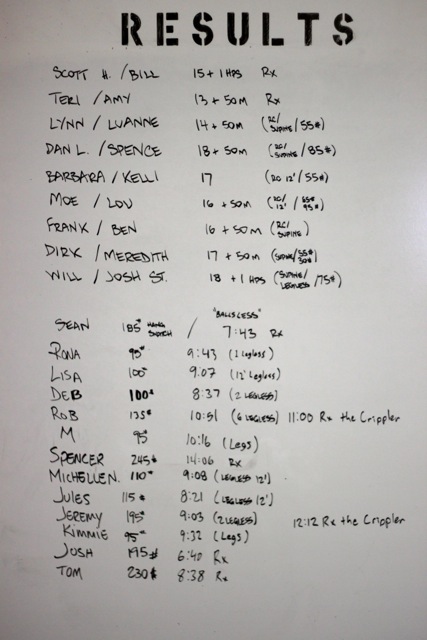 RESULTS
SCOTT H. / BILL 15 + 1 HPS Rx
TERI / AMY 13 + 50M Rx
LYNN / LUANNE 14 + 50M (RC/SUPINE/55#)
DAN L. / SPENCE 18 + 50M (RC/SUPINE/85#)
BARBARA / KELLI 17 (RC 12'/55#)
MOE / LOU 16 + 50M (RC/12'/65# 95#)
FRANK / BEN 16 + 50M (RC/SUPINE)
DIRK / MEREDITH 17 + 50M (SUPINE/55# 30#)
WILL / JOSH ST. 18 + 1 HPS (SUPINE/LEGLESS/75#)
"BALLSLESS"
SEAN 185# HANG SNATCH / 7:43 Rx
RONA 95# 9:43 (2 Legless)
LISA 100# 9:07 (12' Legless)
DEB 100# 8:37 (2 LEGLESS)
ROB 135# 10:51 (6 LEGLESS) 11:00 Rx the Crippler
M 95# 10:16 (Legs)
SPENCER 245# 14:06 Rx
MICHELLEN. 110# 9:08 (LEGLESS 12')
JULES 115# 8:21 (LEGLESS 12')
JEREMY 195# 9:03 (2 LEGLESS) 12:12 Rx the Crippler
KIMMIE 95# 9:32 (Legs)
JOSH 195# 6:40 Rx
TOM 230# 8:38 Rx